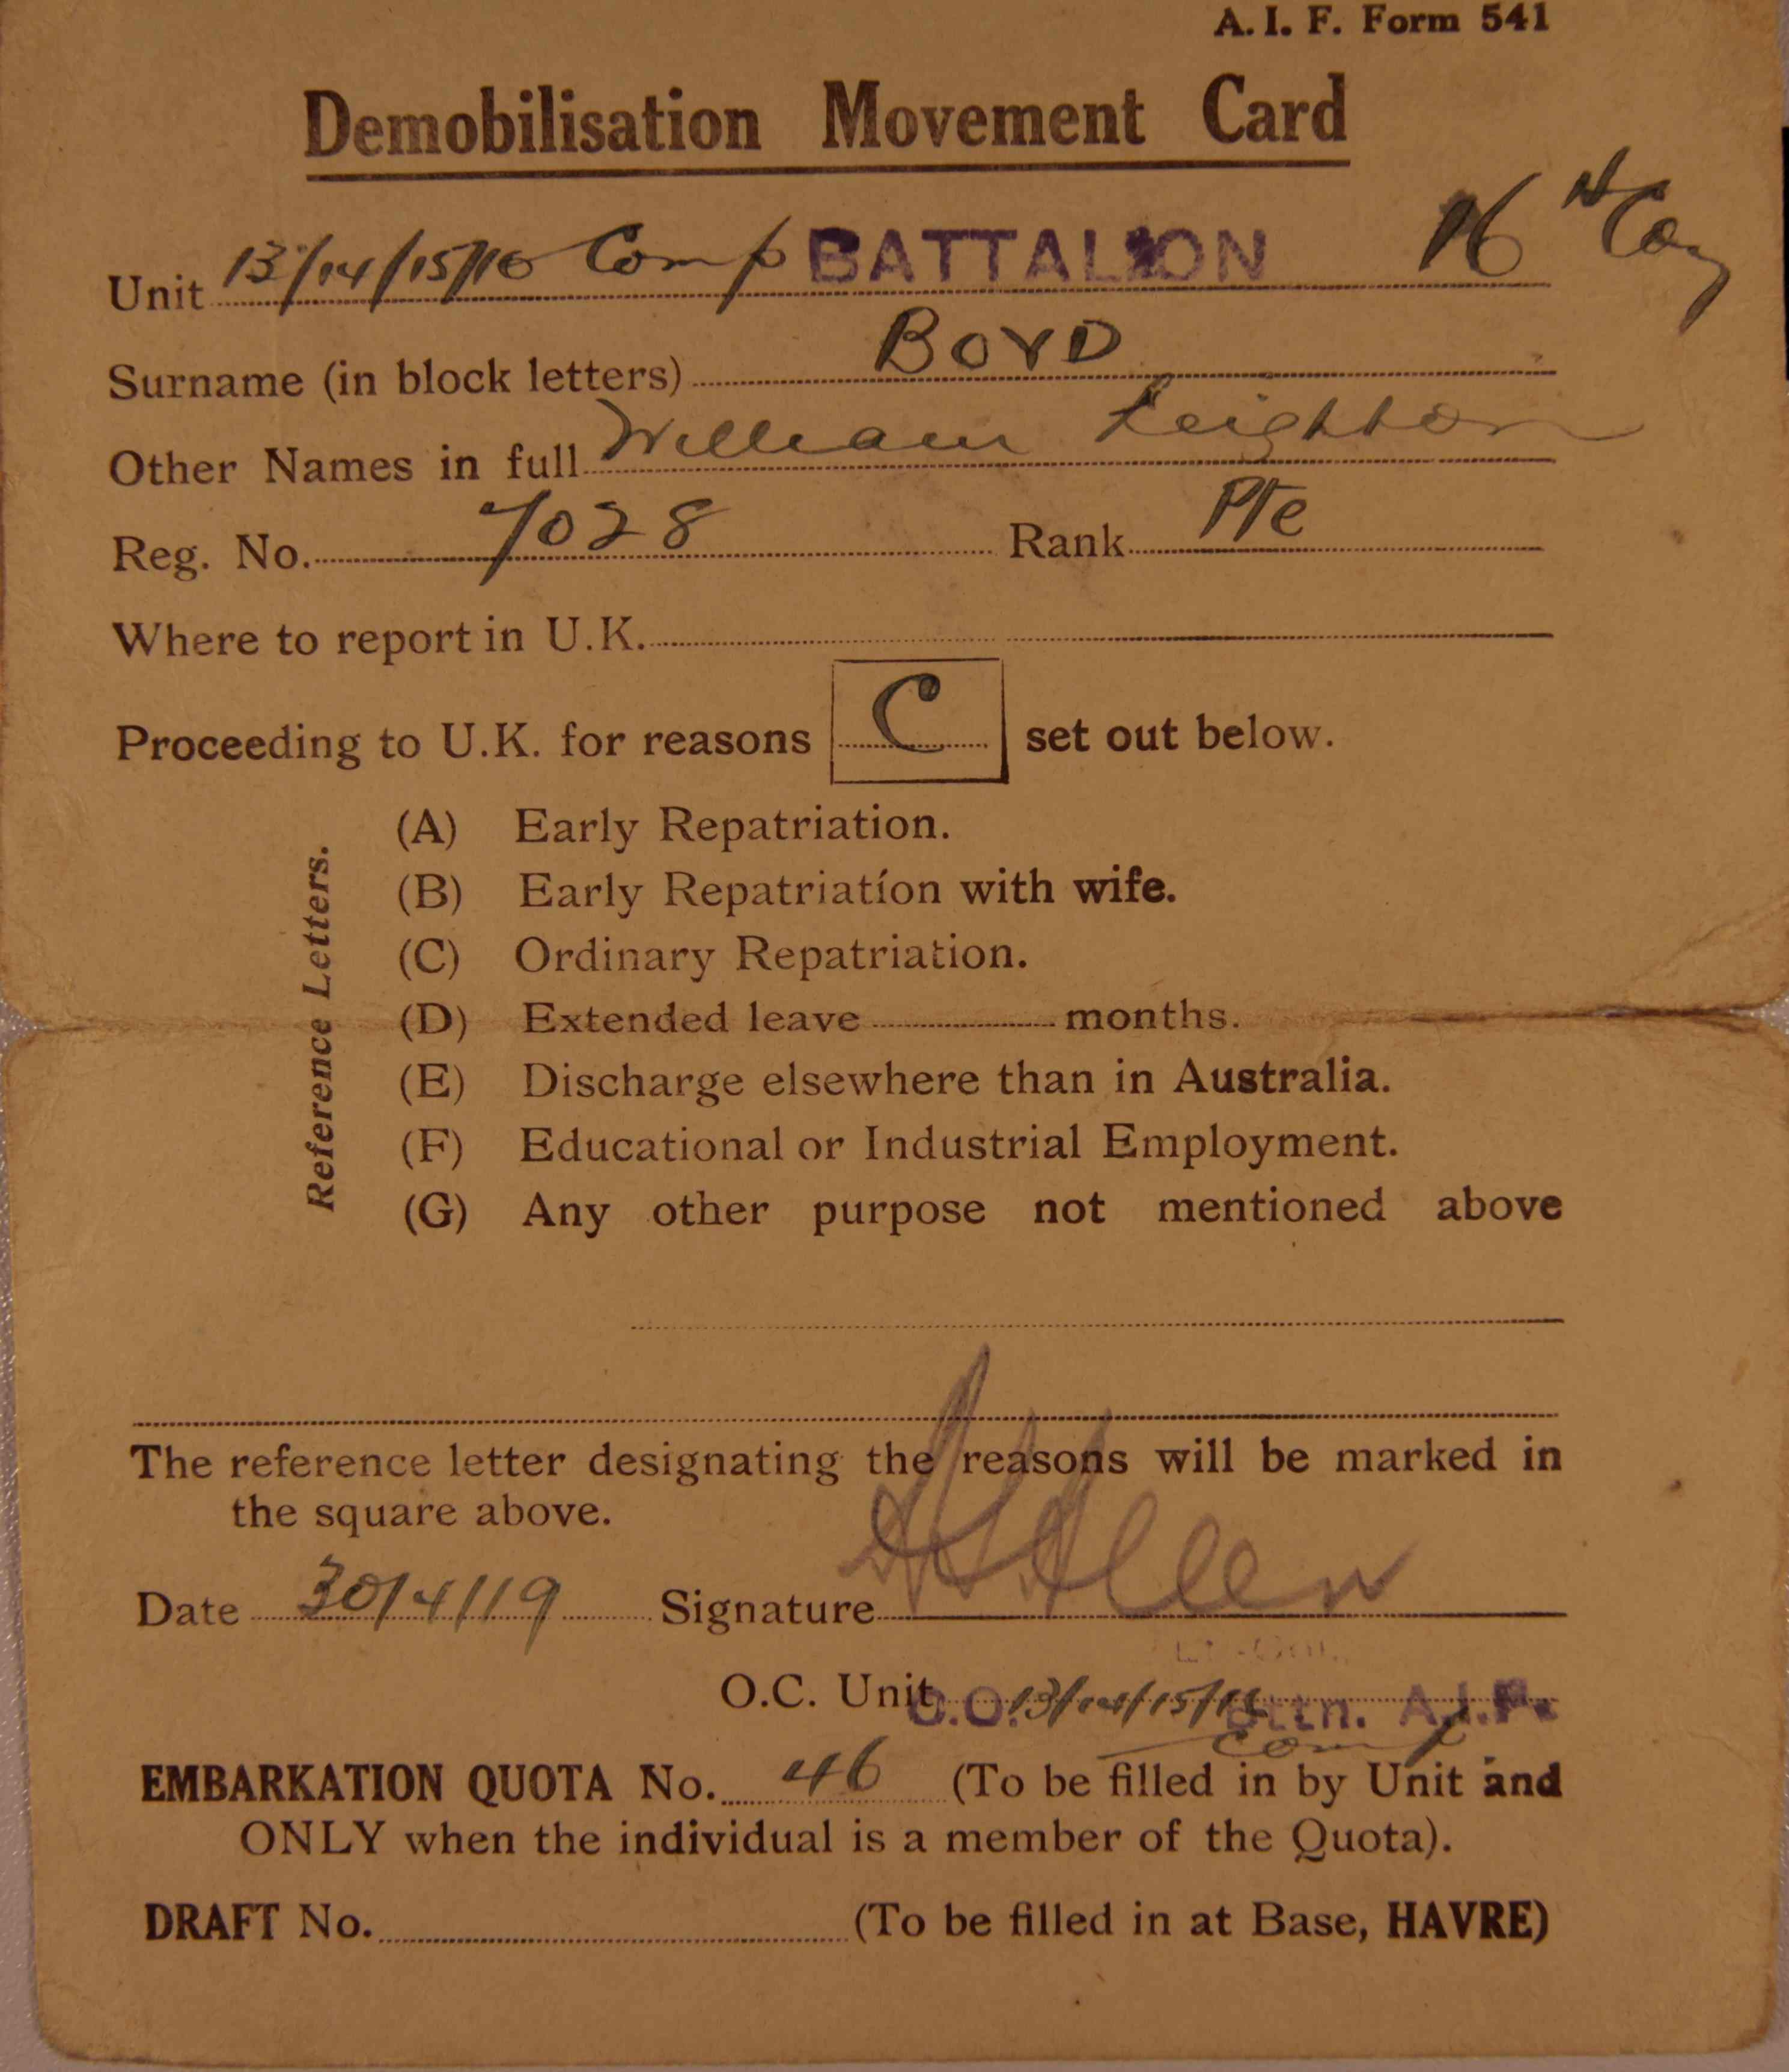 A. I. F. Form 541
Demobilisation Movement Card
Unit 13/14/15/16 Comp BATTALION 16th Coy
Surname (in block letters) BOYD
Other Names in full William Leighton
Reg. No. 7028 Rank Pte
Where to report in U.K.
Proceeding to U.K. for reasons C set out below.
Reference Letters.
(A) Early Repatriation.
(B) Early Repatriation with wife.
(C) Ordinary Repatriation.
(D) Extended leave months.
(E) Discharge elsewhere than in Australia.
(F) Educational or Industrial Employment.
(G) Any other purpose not mentioned above
The reference letter designating the reasons will be marked in
the square above.
Date 30/4/19 Signature Allen
Lt.-Col.
O.C. Unit C.O. 13/14/15/16 Bttn. A.I.F.
Comp
EMBARKATION QUOTA No. 46 (To be filled in by Unit and
ONLY when the individual is a member of the Quota).
DRAFT No. (To be filled in at Base, HAVRE)